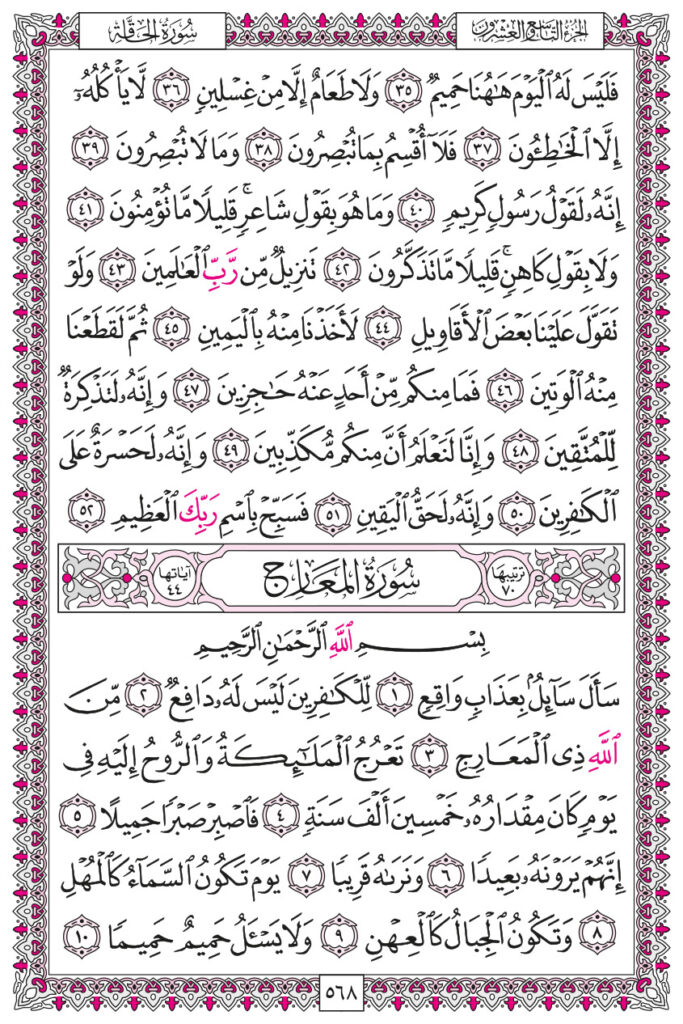 الجزء التاسع والعشرون
سُورَةُ الحَاقَّة
فَلَيْسَ لَهُ الْيَوْمَ هَاهُنَا حَمِيمٌ ٣٥ وَلَا طَعَامٌ إِلَّا مِنْ غِسْلِينٍ ٣٦ لَّا يَأْكُلُهُ
إِلَّا الْخَاطِئُونَ ٣٧ فَلَا أُقْسِمُ بِمَا تُبْصِرُونَ ٣٨ وَمَا لَا تُبْصِرُونَ ٣٩
إِنَّهُ لَقَوْلُ رَسُولٍ كَرِيمٍ ٤٠ وَمَا هُوَ بِقَوْلِ شَاعِرٍ ۚ قَلِيلًا مَّا تُؤْمِنُونَ ٤١
وَلَا بِقَوْلِ كَاهِنٍ ۚ قَلِيلًا مَّا تَذَكَّرُونَ ٤٢ تَنزِيلٌ مِّن رَّبِّ الْعَالَمِينَ ٤٣ وَلَوْ
تَقَوَّلَ عَلَيْنَا بَعْضَ الْأَقَاوِيلِ ٤٤ لَأَخَذْنَا مِنْهُ بِالْيَمِينِ ٤٥ ثُمَّ لَقَطَعْنَا
مِنْهُ الْوَتِينَ ٤٦ فَمَا مِنكُم مِّنْ أَحَدٍ عَنْهُ حَاجِزِينَ ٤٧ وَإِنَّهُ لَتَذْكِرَةٌ
لِّلْمُتَّقِينَ ٤٨ وَإِنَّا لَنَعْلَمُ أَنَّ مِنكُم مُّكَذِّبِينَ ٤٩ وَإِنَّهُ لَحَسْرَةٌ عَلَى
الْكَافِرِينَ ٥٠ وَإِنَّهُ لَحَقُّ الْيَقِينِ ٥١ فَسَبِّحْ بِاسْمِ رَبِّكَ الْعَظِيمِ ٥٢
ترتيبها ٧٠ سُورَةُ المَعَارِجِ آياتها ٤٤
بِسْمِ اللَّهِ الرَّحْمَٰنِ الرَّحِيمِ
سَأَلَ سَائِلٌ بِعَذَابٍ وَاقِعٍ ١ لِّلْكَافِرِينَ لَيْسَ لَهُ دَافِعٌ ٢ مِّنَ
اللَّهِ ذِي الْمَعَارِجِ ٣ تَعْرُجُ الْمَلَائِكَةُ وَالرُّوحُ إِلَيْهِ فِي
يَوْمٍ كَانَ مِقْدَارُهُ خَمْسِينَ أَلْفَ سَنَةٍ ٤ فَاصْبِرْ صَبْرًا جَمِيلًا ٥
إِنَّهُمْ يَرَوْنَهُ بَعِيدًا ٦ وَنَرَاهُ قَرِيبًا ٧ يَوْمَ تَكُونُ السَّمَاءُ كَالْمُهْلِ
٨ وَتَكُونُ الْجِبَالُ كَالْعِهْنِ ٩ وَلَا يَسْأَلُ حَمِيمٌ حَمِيمًا ١٠
٥٦٨